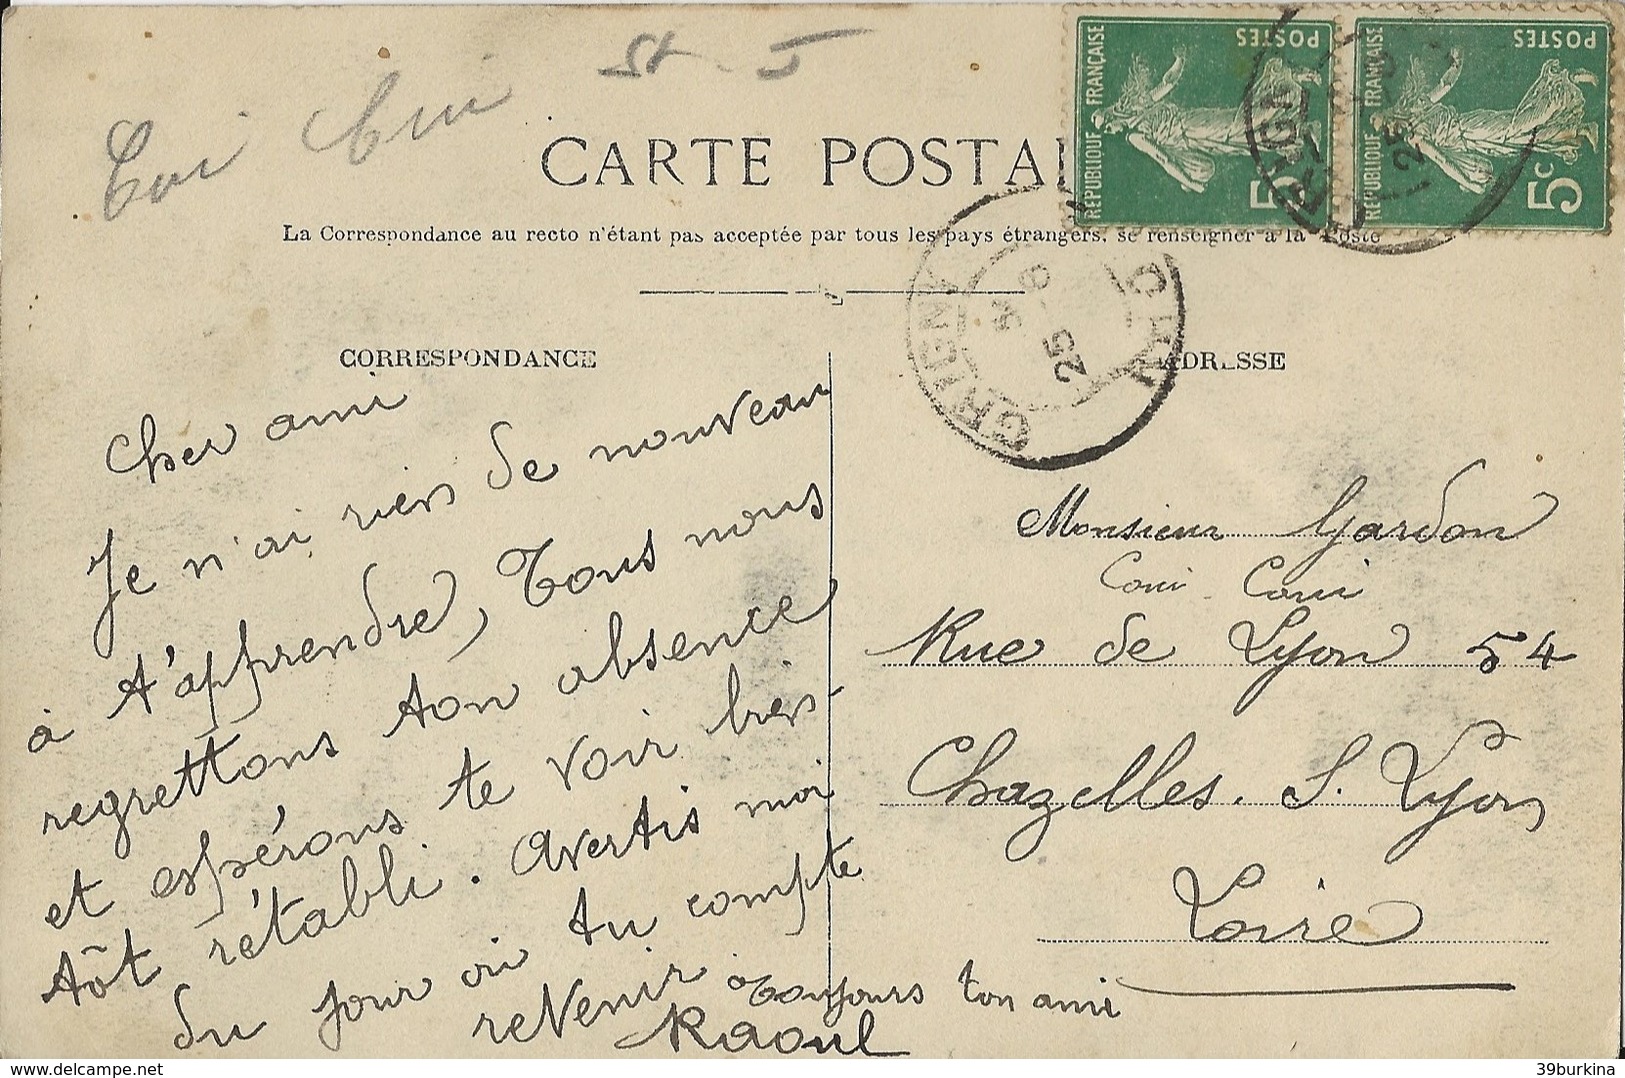 CARTE POSTAL
La Correspondance au recto n'étant pas acceptée par tous les pays étrangers, se renseigner à la Poste
RÉPUBLIQUE FRANÇAISE
POSTES
5
RÉPUBLIQUE FRANÇAISE
POSTES
5c
GRIGNY
25
25
CORRESPONDANCE
Cher ami
Je n'ai rien de nouveau
à t'apprendre, Tous nous
regrettons ton absence
et espérons te voir bien-
tôt rétabli. Avertis moi
du jour où tu compte
revenir. Toujours ton ami
Raoul
ADRESSE
Monsieur Gardon
Rue de Lyon 54
Chazelles. S. Lyon
Loire
delcampe.net
39burkina